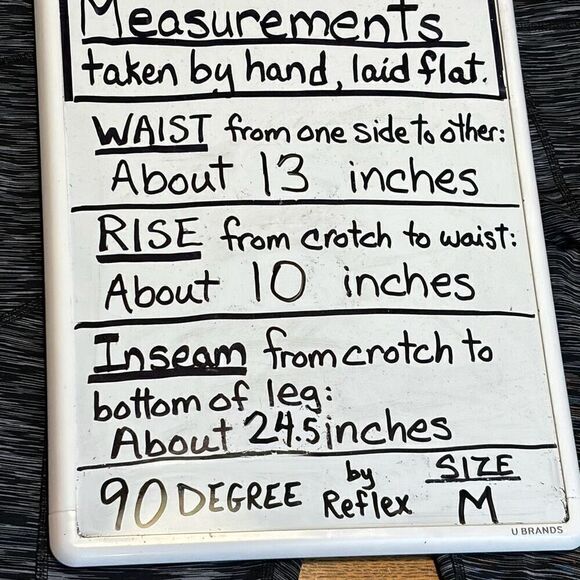 Measurements
taken by hand, laid flat.
WAIST from one side to other:
About 13 inches
RISE from crotch to waist:
About 10 inches
Inseam from crotch to
bottom of leg:
About 24.5 inches
90 DEGREE by Reflex SIZE M
U BRANDS